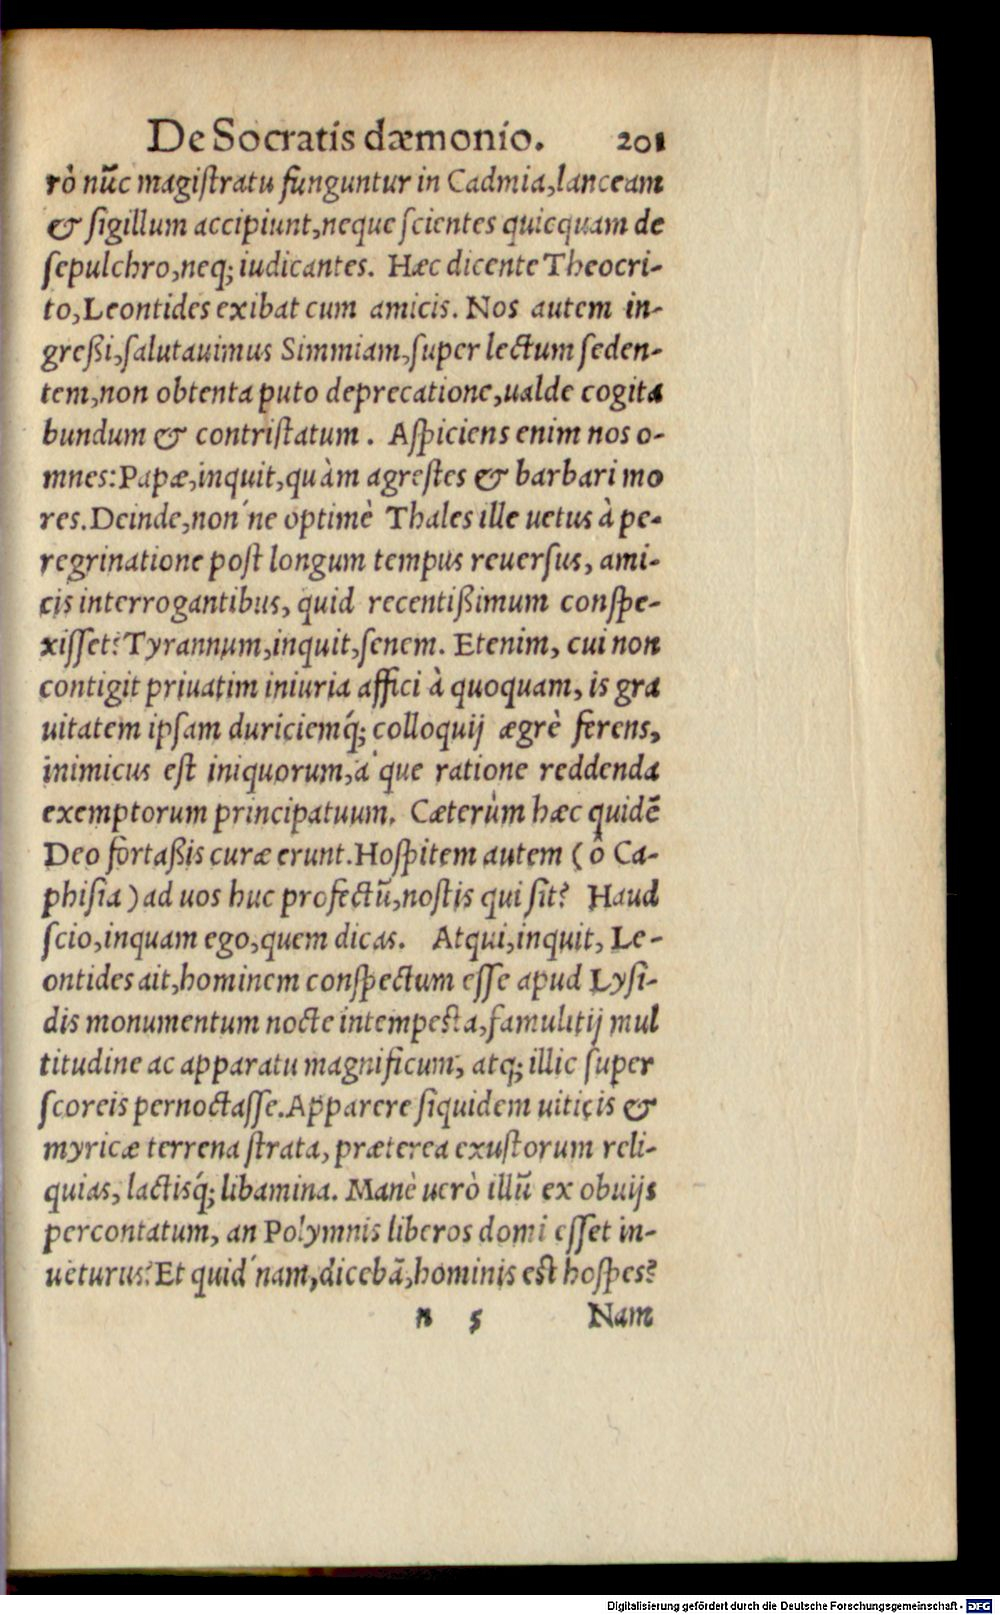 De Socratis dæmonio. 201
rò nūc magiſtratu funguntur in Cadmia, lanceam
& ſigillum accipiunt, neque ſcientes quicquam de
ſepulchro, neq; iudicantes. Hæc dicente Theocri-
to, Leontides exibat cum amicis. Nos autem in-
greßi, ſalutauimus Simmiam, ſuper lectum ſeden-
tem, non obtenta puto deprecatione, ualde cogita
bundum & contriſtatum. Aſpiciens enim nos o-
mnes: Papæ, inquit, quàm agreſtes & barbari mo
res. Deinde, non´ne optimè Thales ille uetus à pe-
regrinatione poſt longum tempus reuerſus, ami-
cis interrogantibus, quid recentißimum conſpe-
xiſſet? Tyrannum, inquit, ſenem. Etenim, cui non
contigit priuatim iniuria affici à quoquam, is gra
uitatem ipſam duriciemq́; colloquij ægrè ferens,
inimicus eſt iniquorum, a´que ratione reddenda
exemptorum principatuum. Cæterùm hæc quidē
Deo fortaßis curæ erunt. Hoſpitem autem (ô Ca-
phiſia) ad uos huc profectū, noſtis qui ſit? Haud
ſcio, inquam ego, quem dicas. Atqui, inquit, Le-
ontides ait, hominem conſpectum eſſe apud Lyſi-
dis monumentum nocte intempeſta, famulitij mul
titudine ac apparatu magnificum, atq; illic ſuper
ſcoreis pernoctaſſe. Apparere ſiquidem uiticis &
myricæ terrena ſtrata, præterea exuſtorum reli-
quias, lactisq́; libamina. Manè uerò illū ex obuijs
percontatum, an Polymnis liberos domi eſſet in-
uēturus? Et quid´nam, dicebā, hominis eſt hoſpes?
n 5 Nam
Digitalisierung gefördert durch die Deutsche Forschungsgemeinschaft - DFG